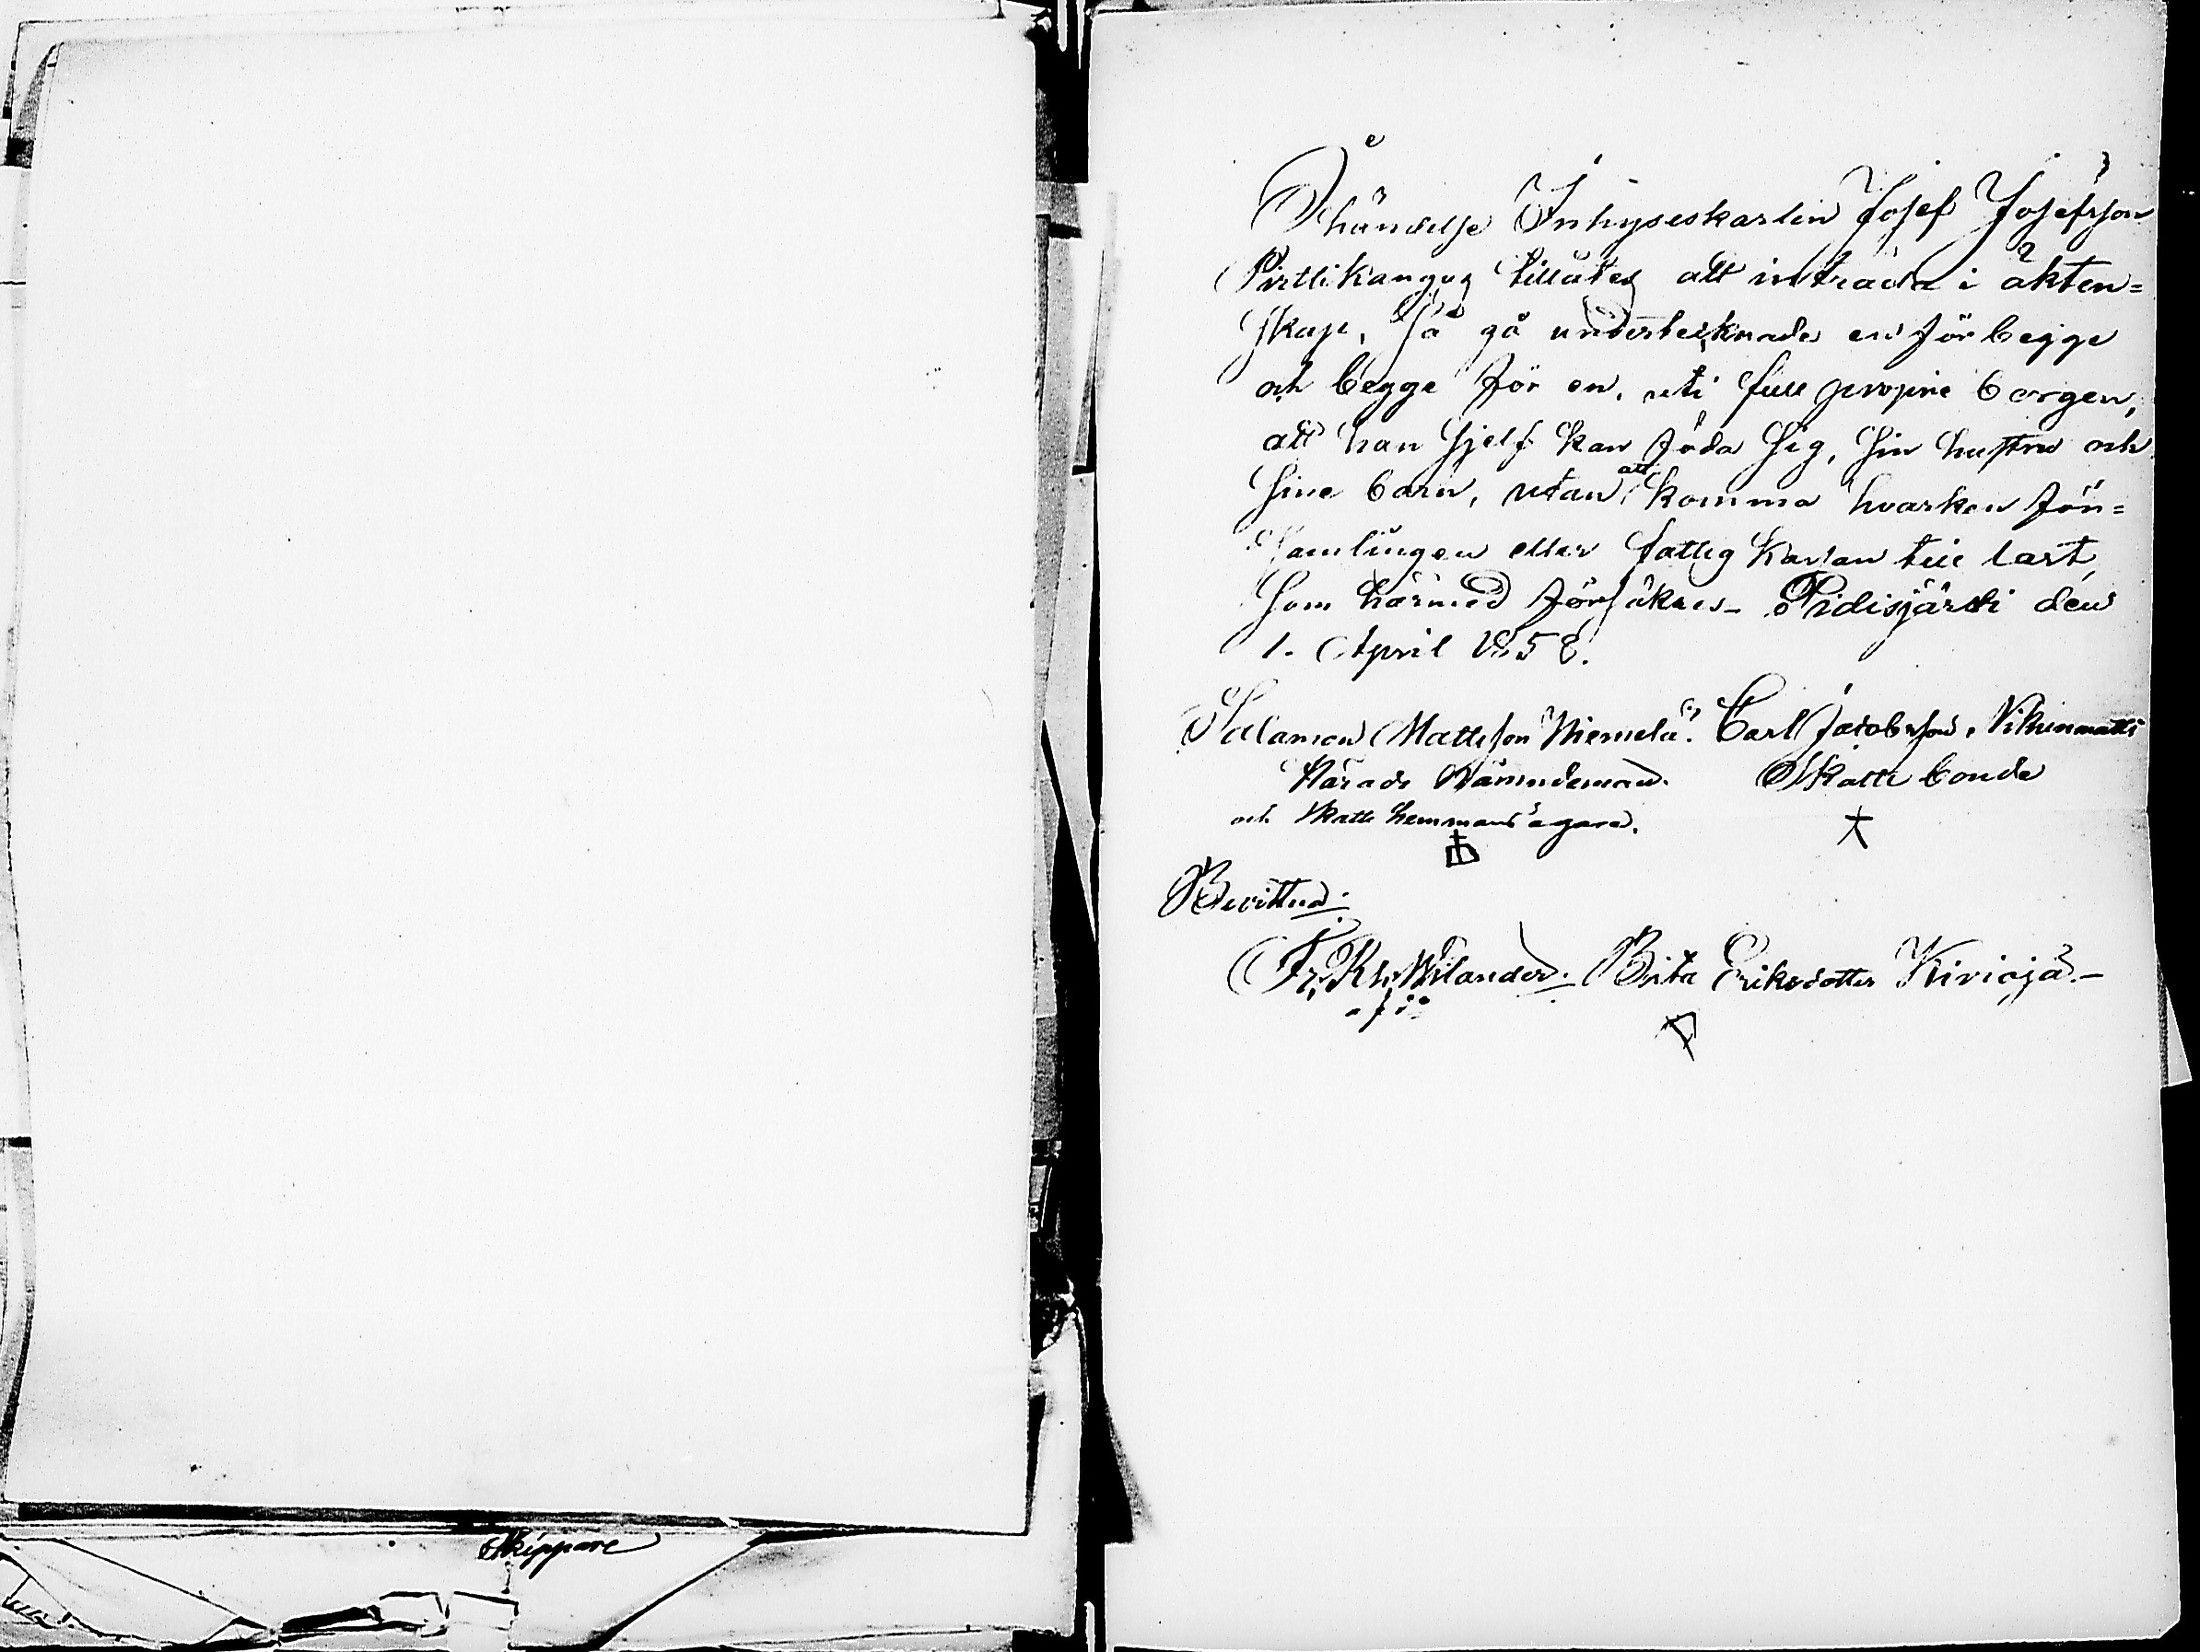 I händelse Inhyseskarlen Josef Josefsson
Pirttikangas tillåtes att inträda i äkten=
skap, så gå undertecknade en för begge
och begge för en, uti full proprie borgen,
att han sjelf kan föda sig, sin hustru och
sine barn, utan att komma hvarken för=
samlingen eller fattig kassan till last,
som härmed försäkras. Pidisjärvi den
1. April 1858.
Salamon Mattsson Niemelä. Carl Jacobsson,
Härads Nämndeman. Skatte bonde
och Skatte hemmans ägare.
Bevittna:
Fr. Wilander. Brita Eriksdotter Kivioja.-
Skippare